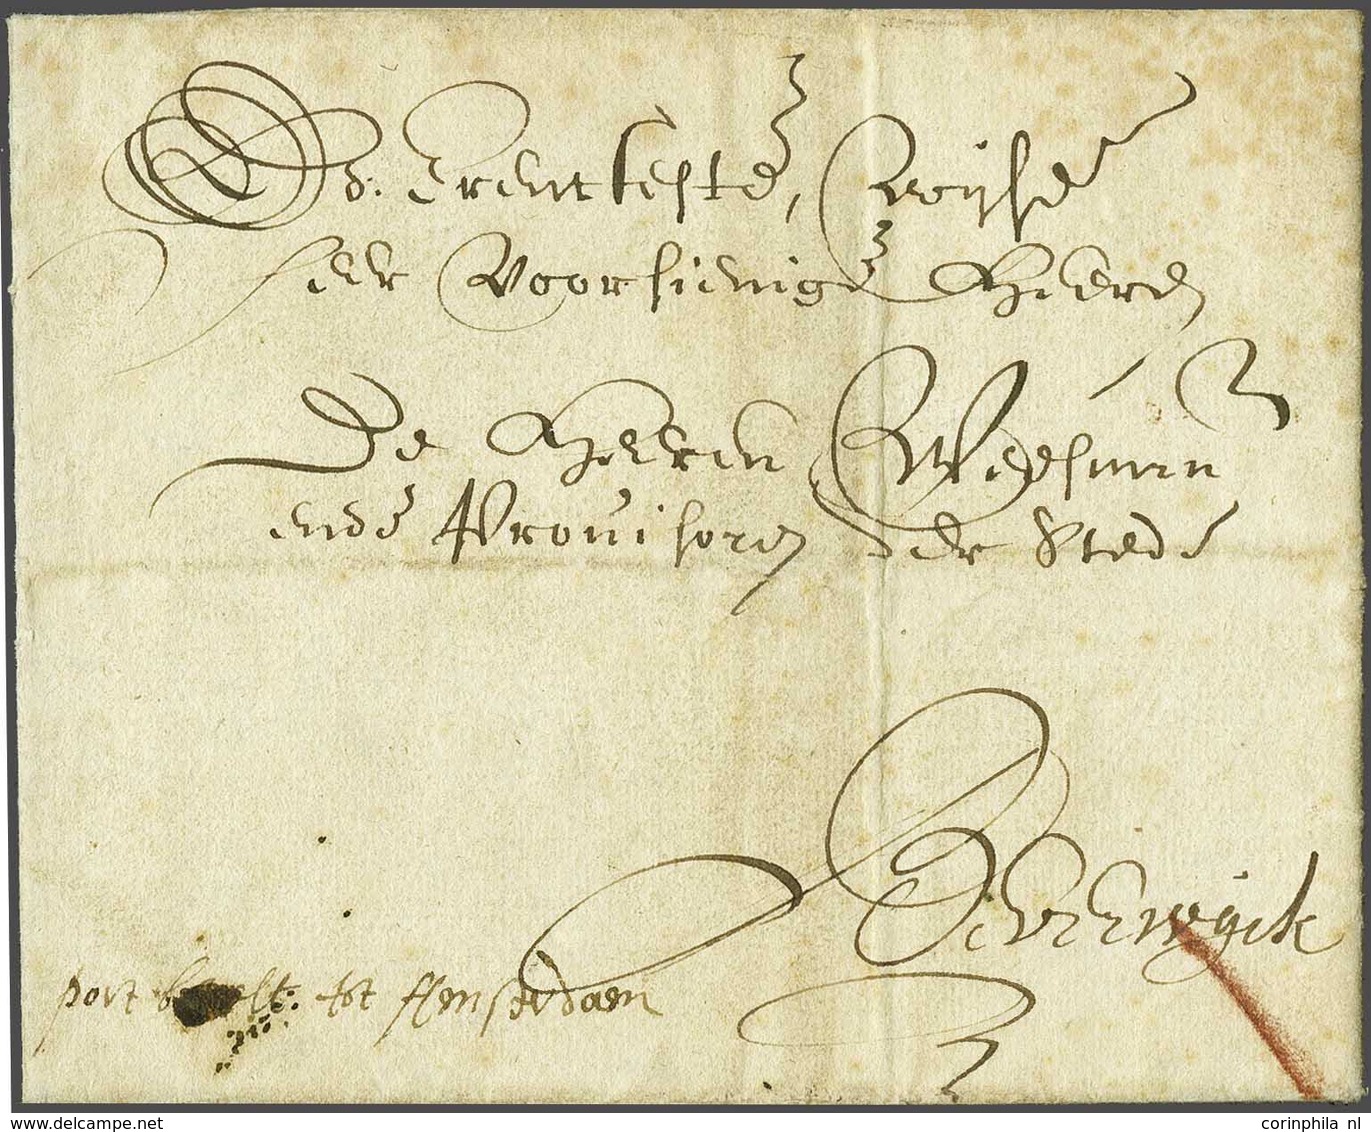 Ed. erentfeste, Wijse
seer Voorsienige Heeren
De Heeren Weesmrn
ende Provisoren der Stede
Beverwijck
port betaelt tot Amsterdam
www.delcampe.net
corinphila nl